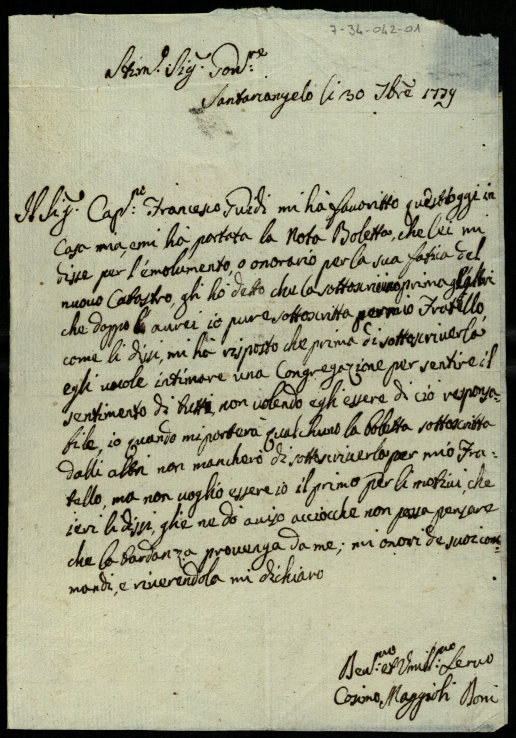 7-34-042-01
Stim.o Sig.r Pon.re
Santarcangelo li 30 Xbre 1779
Il Sig.r Cap.ne Francesco Guidi mi hà favoritto quest'oggi in
Casa mia, e mi hà portata la Nota Boletta, che lei mi
disse per l'emolumento, o onorario per la sua fatica del
nuovo Catastro, gli hò detto che la sottoscrivino prima gl'altri
che doppo l'aurei io pure sottoscritta per mio Fratello,
come li dissi, mi hà risposto che prima di sottoscriverla
egli vuole intimare una Congregazione per sentire il
sentimento di tutti, non volendo egli essere di ciò responsa-
bile, io quando mi porterà qualchuno la boletta sottoscritta
dalli altri non mancherò di sottoscriverla per mio Fra-
tello, ma non voglio essere io il primo per li motivi, che
ieri li dissi, glie ne dò aviso acciocche non possa pensare
che la tardanza provenga da me; mi onori de suoi con-
mandi, e riverendola mi dichiaro
Dev.mo et Umil.mo Servo
Cosimo Maggioli Boni